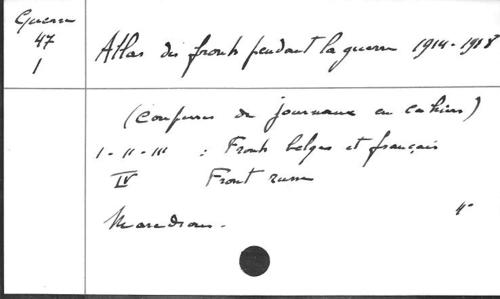 Guerre
47
1
Atlas des fronts pendant la guerre 1914-1918
(Coupures de journaux en cahiers)
I - II - III : Fronts belges et français
IV Front russe
4°